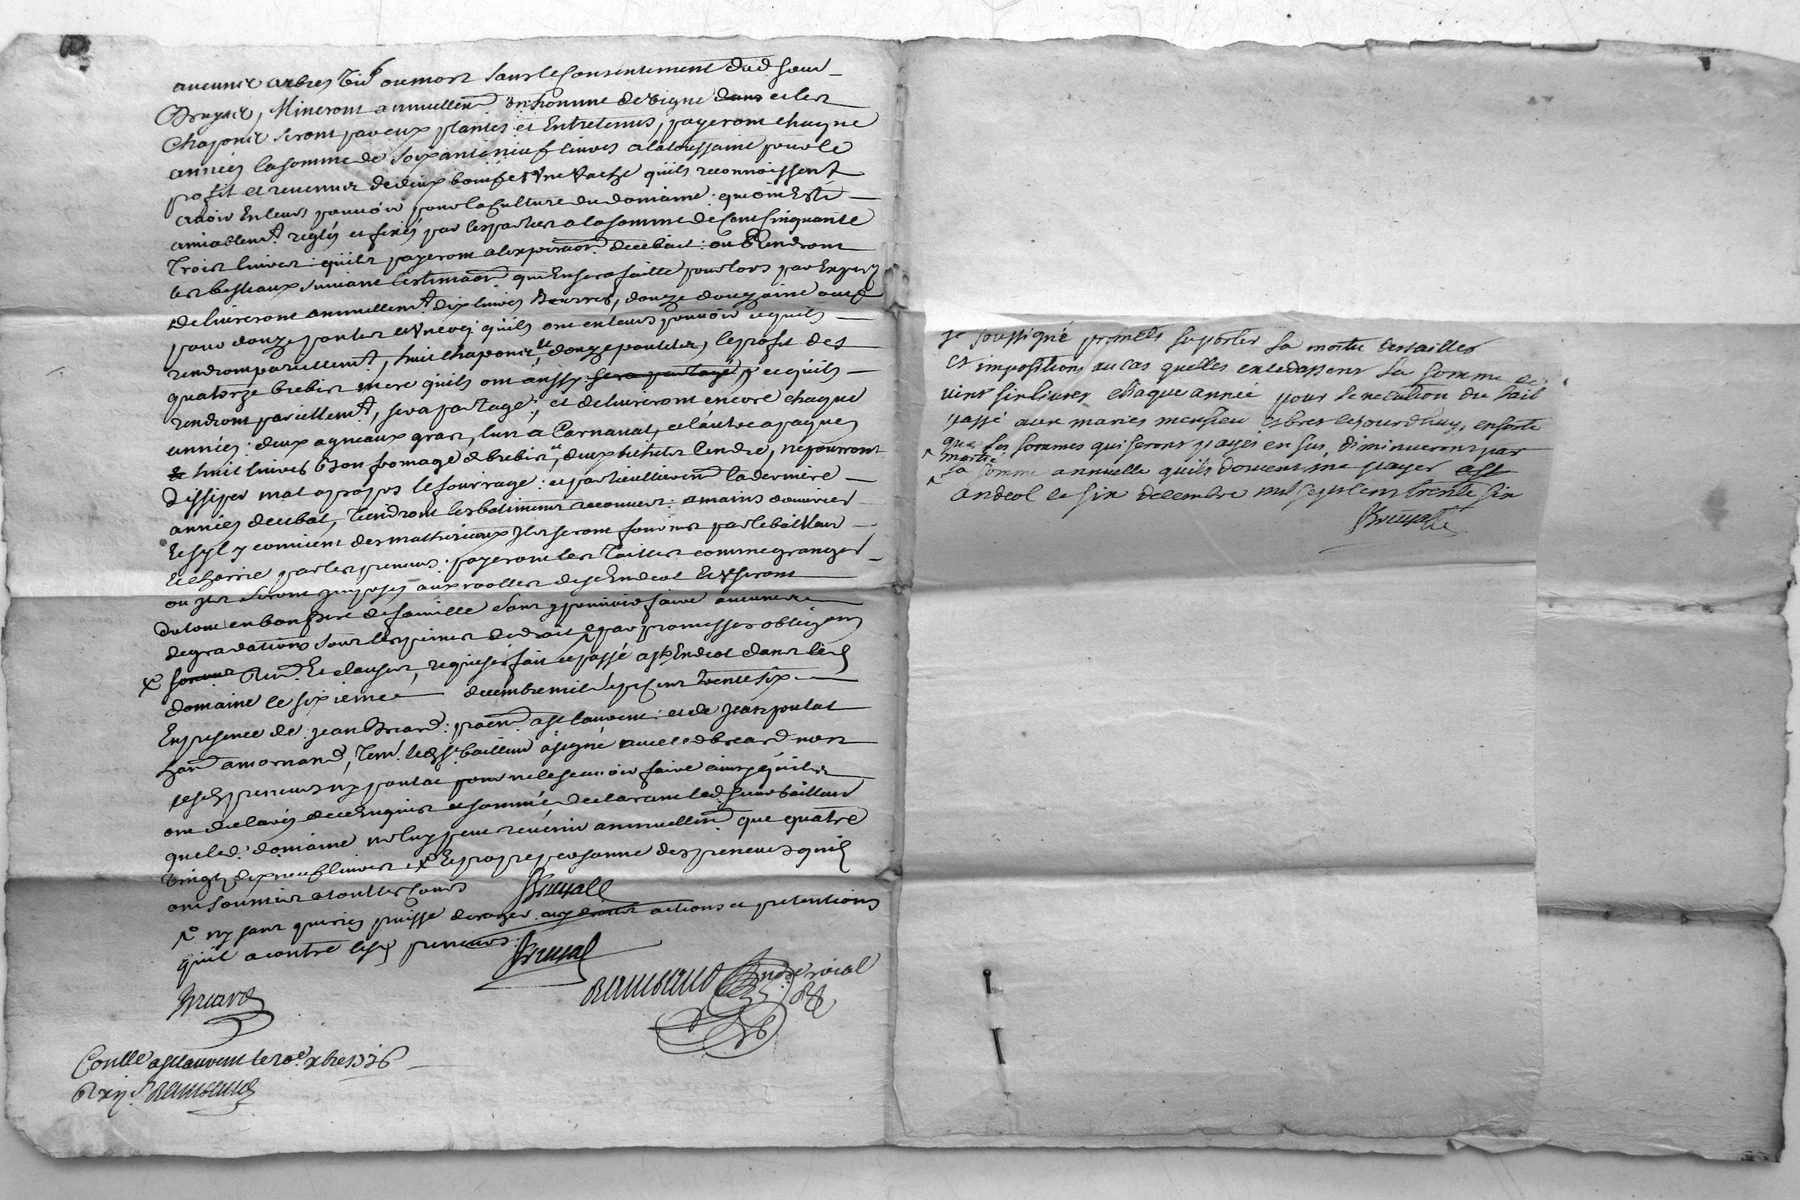 aucuns arbres vif ou mort sans le consentement dud. sieur
Bruyas, Mineront annuellemt. un homme de vigne et les
Chapons seront par eux plantés et Entretenus, payeront chaque
années la somme de soixante neuf livres a la toussaint pour le
profit et revenu de deux boeufs et une vache qu'ils reconnoissent
avoir En leurs pouvoir pour la Culture du domaine. quoin Esté
amiablemt. reglés et fixés par les parties a la somme de Cent Cinquante
Trois livres: qu'ils payeront a lexpiraon. de ce bail: ou Rendront
les bestiaux suivant lestimaon. que En sera faitte pour lors par Expers
delivreront annuellemt. dix livres Beurres, douze douzaine oeufs
pour douze poules et un coq qu'ils ont en leurs pouvoir et quils
rendront pareillemt., huit chapons, douze poulets, le profit des
quatorze brebis mere qu'ils ont aussy et quils
rendront pareillemt., sera partagé; et delivreront encore chaque
années: deux agneaux gras, lun a Carnaval, et lautre a paques
huit livres bon fromage de brebis, deux, ne pourront
dissiper mal apropos le fourrage: et particulierem. la derniere
années de ce bail, tiendront les batiments recouvers: a mains d'ouvrier
Et syl y convient des matheriaux Ils seront fournis par le bailleur
Et charrié par les preneurs. payeront les Tailles comme granger
ou Ils seront imposés aux roolles de st Endeol Et useront
du tout en bon pere de famille sans y pouvoir faire aucunes
degradations sous les peines de droit par promesses obligaons
Et clauses, requises fait et passé a st Endeol dans led.
domaine le sixieme decembre mil sept cent trente six
En presence de jean Briard: a st Lauvent: et de Jean poulat
a mornand, tem. led. sr bailleur a signé avec led briard non
lesd. preneurs ny poulat pour ne le scavoir faire ainsy qu'ils
ont declarés de ce Enquis et sommé declarant led. sieur bailleur
que led. domaine ne luy peut revenir annuellem. que quatre
vingt dix neuf livres Et propre personne des preneurs quils
ont soumis a toutes cours Bruyas
ny sans que rien puisse deroger aux droits actions et pretentions
qu'il a contre lesd preneurs. Bruyas
Briard Rambaud
Conllé a st Lauvent le 20e. xbre 1736
Rambaud
je soussigné promets suporter la moitié des tailles
et impositions au cas quelles excedassent la somme de
vint six livres chaque année pour lexecution du bail
passé aux mariés jourdhuy, ensorte
que les sommes qui seront payes en sus, diminueront par
moitié
la somme annuelle quils doivent me payer a st
andeol le six decembre mil sept cens trente six
Bruyas